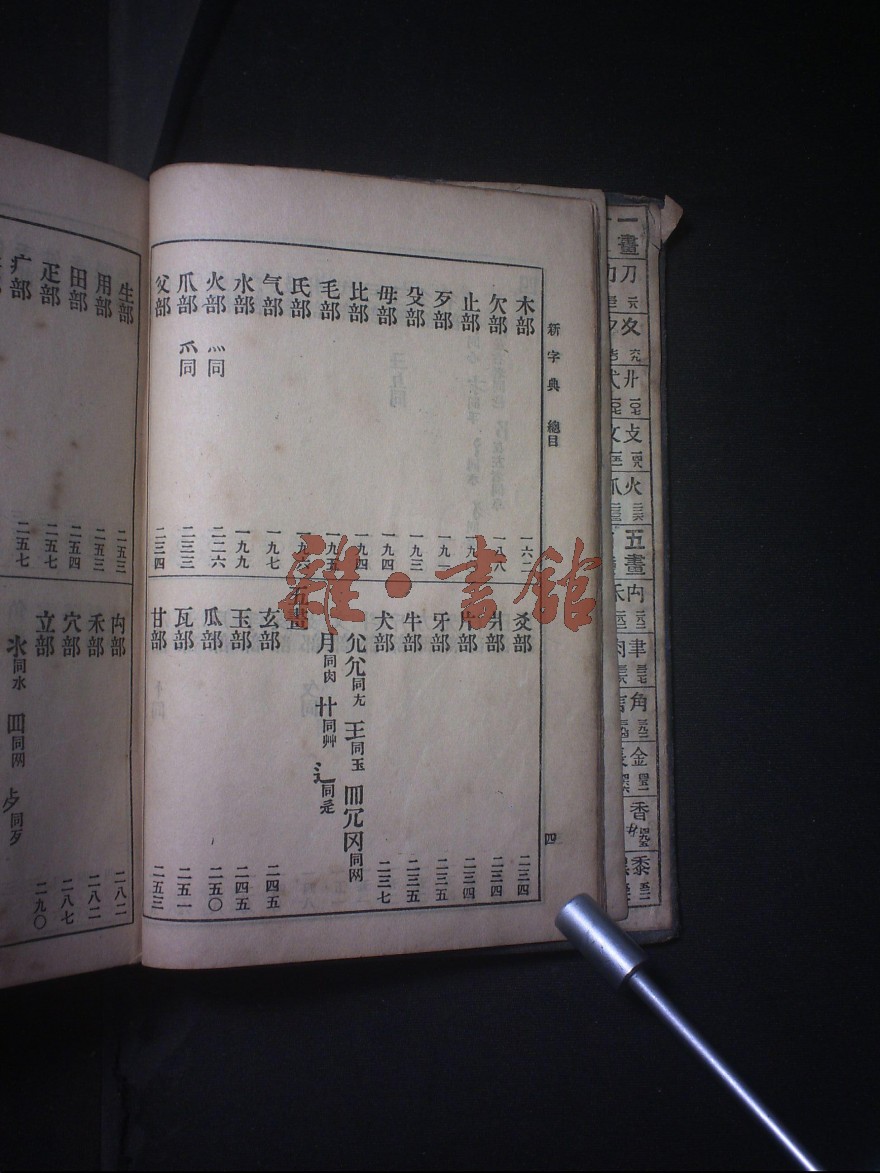 新字典 總目
四
木部 一六二
欠部 一八八
止部
歹部 一九一
殳部 一九三
毋部 一九四
比部 一九四
毛部 一九五
氏部 一九六
气部 一九七
水部 一九九
火部 灬同 二二六
爪部 爫同 二三三
父部 二三四
爻部 二三四
爿部 二三四
片部 二三四
牙部 二三五
牛部 二三五
犬部 二三七
允尣同尢 王同玉 罒冗冈同网
月同肉 艹同艸 辶同辵
五畫
玄部 二四五
玉部 二四五
瓜部 二五〇
瓦部 二五一
甘部 二五三
生部 二五三
用部 二五三
田部 二五四
疋部 二五七
疒部 二五七
禸部 二八二
禾部 二八二
穴部 二八七
立部 二九〇
氺同水 罒同网 歺同歹
一畫
刀
夊
廾
攴
火
五畫
禸
禾
聿
肉
角
金
香
黍
雜·書館